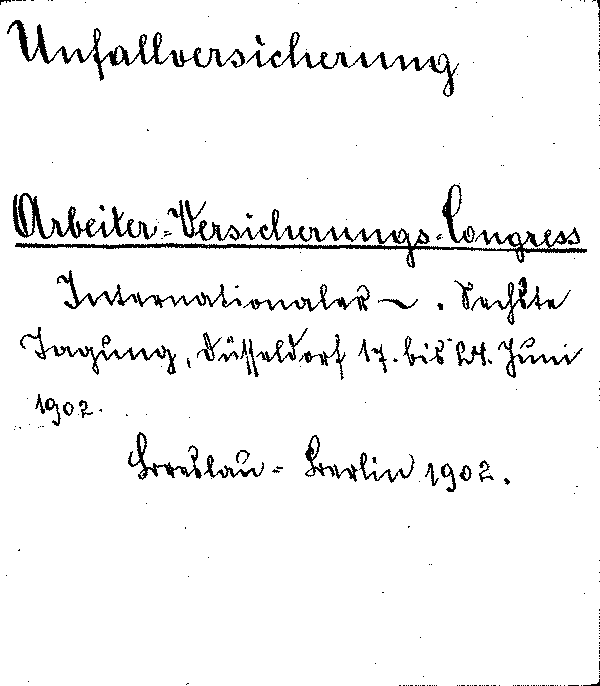 Unfallversicherung
Arbeiter-Versicherungs-Congress
Internationaler ~ . Sechste
Tagung, Düsseldorf 17. bis 24. Juni
1902.
Breslau - Berlin 1902.